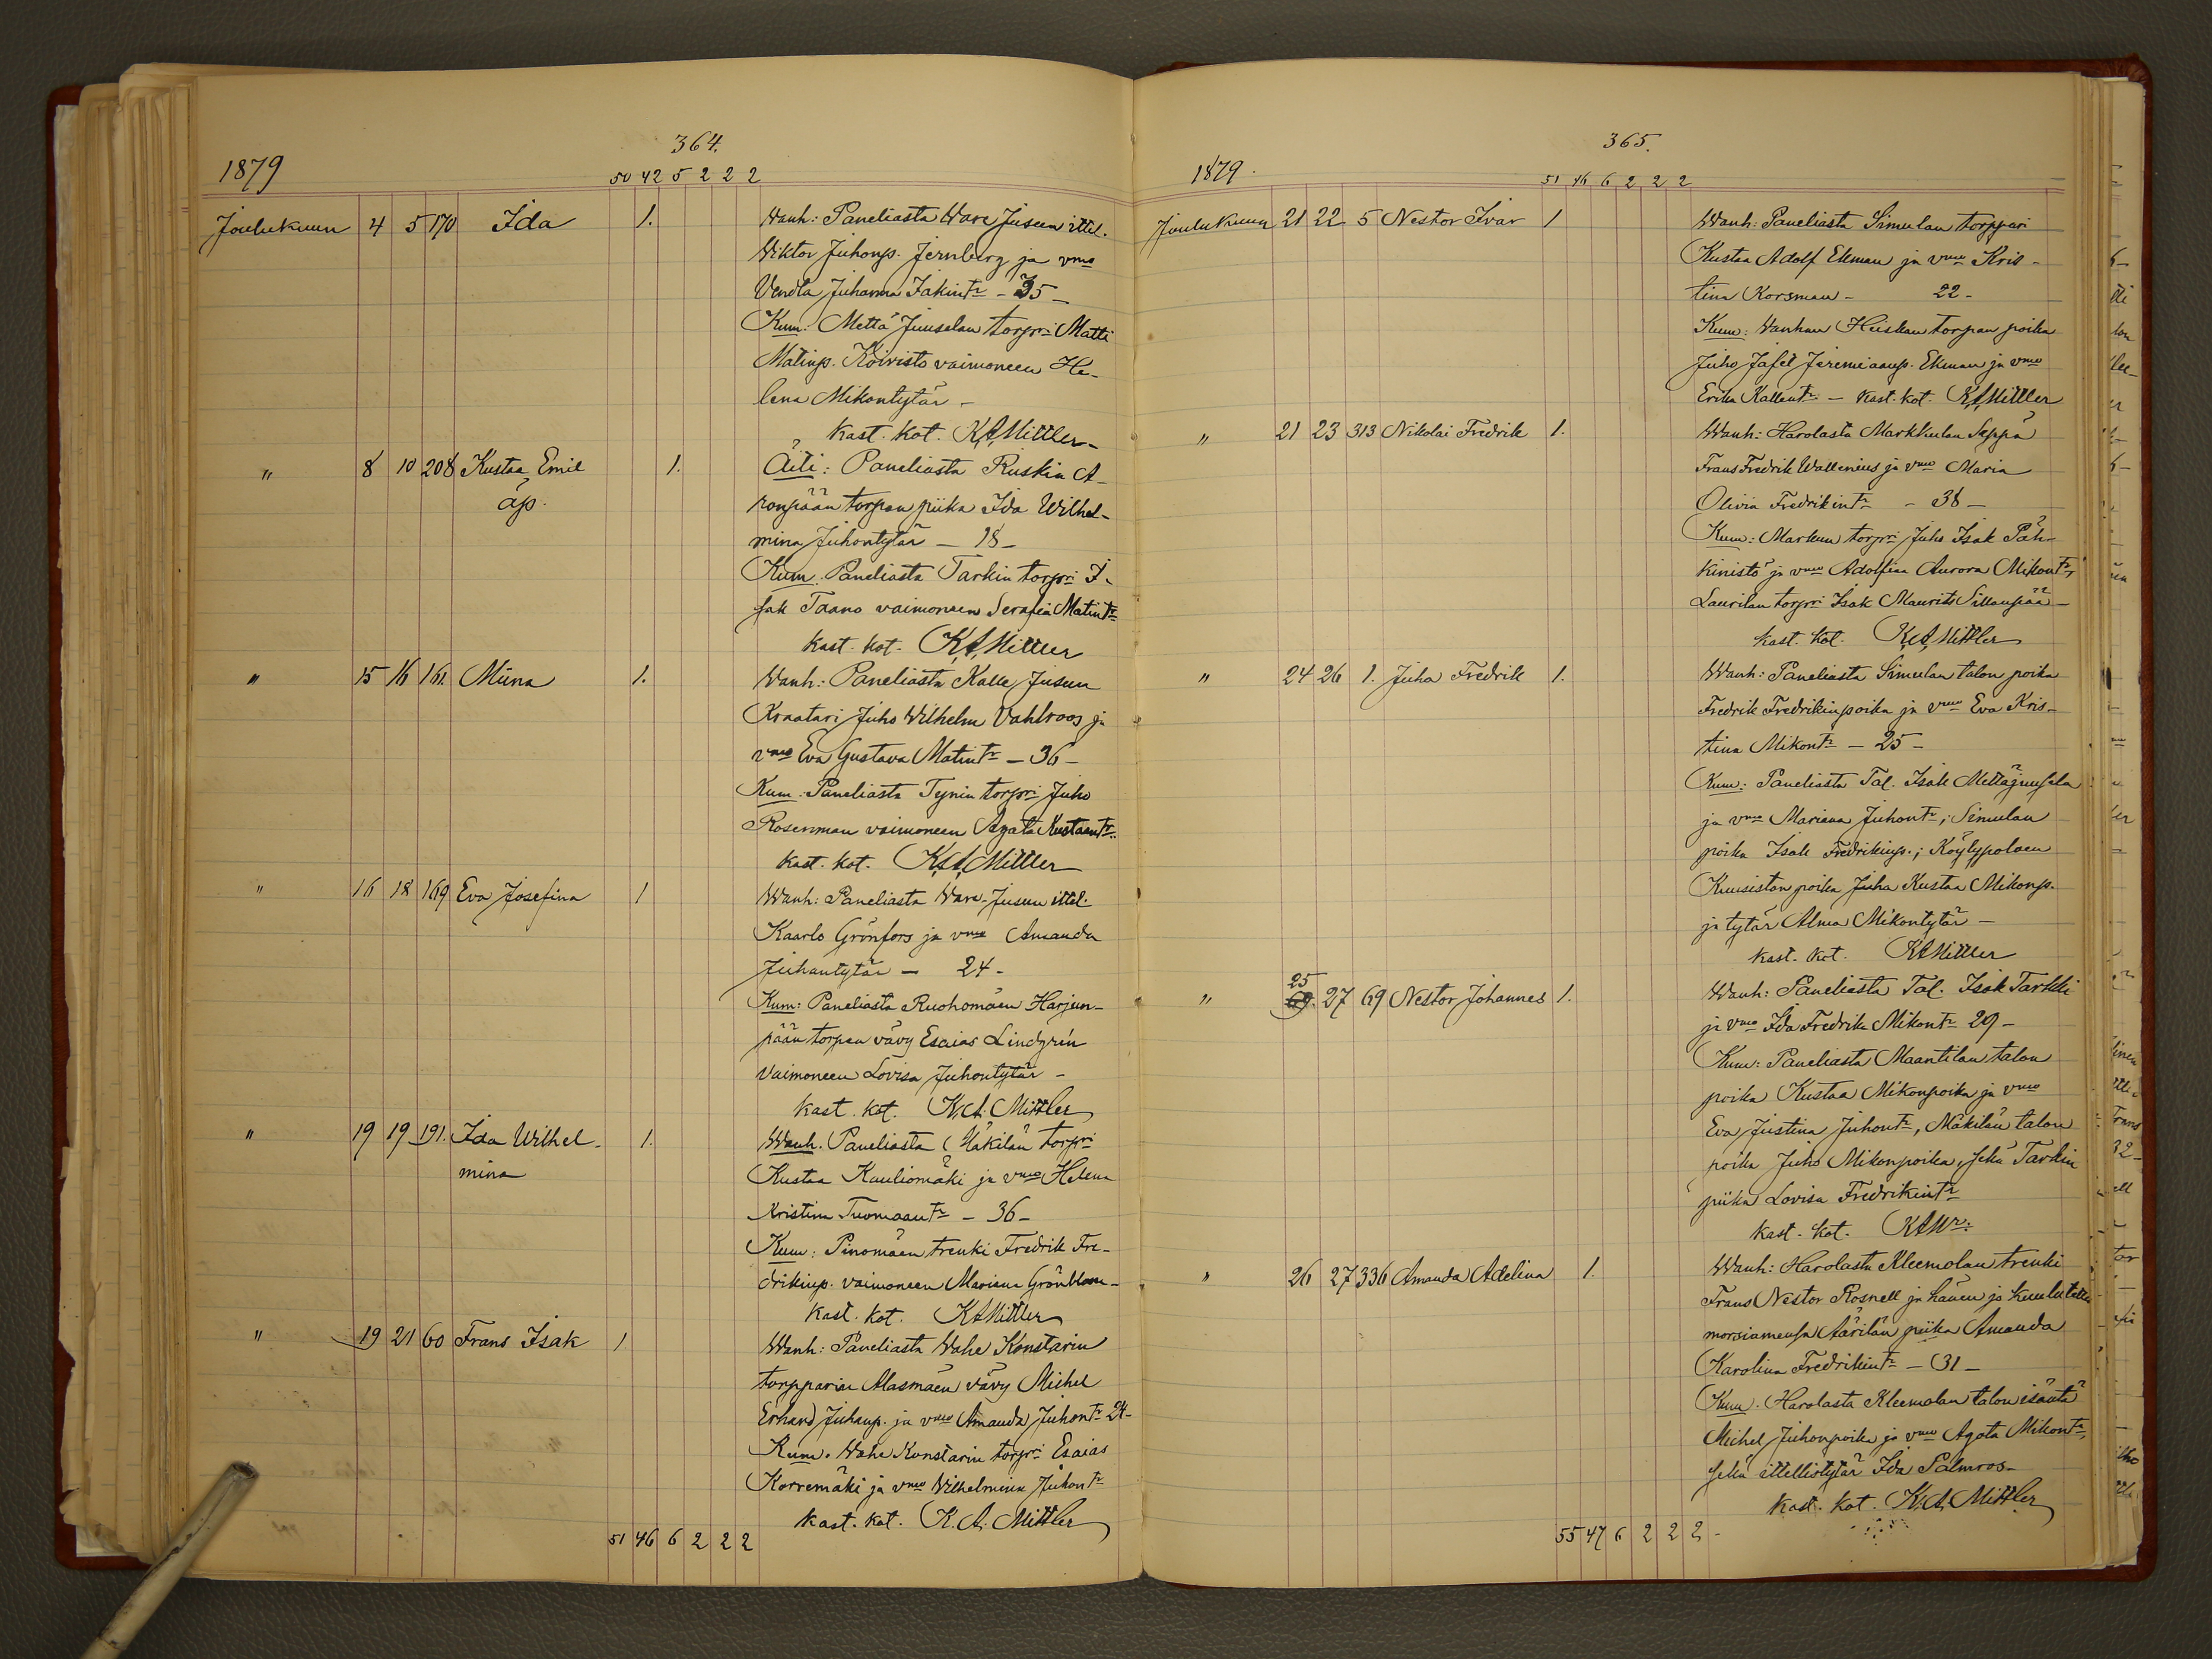 364.
1879
50 42 5 2 2 2
Joulukuun 4 5 170 Ida 1. Wanh: Paneliasta Ware Jusun ittel.
Wiktor Juhonp. Jernberg ja vmo
Vendla Juhanna Isakintr - 35 -
Kum: Mettä Juusalan torpri Matti
Matinp. Koivisto vaimoneen He-
lena Mikontytär -
kast. kot. K.A. Mittler -
" 8 10 208 Kustaa Emil 1. Äiti: Paneliasta Ruskin A-
äp. ronpään torpan piika Ida Wilhel-
mina Juhontytär - 18 -
Kum. Paneliasta Tarkin torpri I-
sak Taano vaimoneen Serafia Matintr
kast. kot. K.A. Mittler
" 15 16 161. Miina 1. Wanh: Paneliasta Kalle Jusun
Kraatari Juho Wilhelm Vahlroos ja
vmo Eva Gustava Matintr - 36 -
Kum: Paneliasta Tynin torpri Juho
Rosenman vaimoneen Agata Kustaantr.
kast. kot. K.A. Mittler
" 16 18 169 Eva Josefina 1 Wanh: Paneliasta Ware-Jusun ittel.
Kaarlo Grönfors ja vmo Amanda
Juhantytär - 24 -
Kum: Paneliasta Ruohomäen Harjun-
pään torpan vävy Esaias Lindgrén
vaimoneen Lovisa Juhontytär -
kast. kot. K.A. Mittler
" 19 19 191. Ida Wilhel- 1. Wanh. Paneliasta Mäkilän torpri
mina Kustaa Kauliomäki ja vmo Helena
Kristina Tuomaantr - 36 -
Kum: Pinomäen trenki Fredrik Fre-
drikinp. vaimoneen Mariana Grönblom -
kast. kot. K.A. Mittler
" 19 21 60 Frans Isak 1 Wanh: Paneliasta Wahe Konstarin
torpparin Alasmäen vävy Michel
Erhard Juhanp. ja vmo Amanda Juhontr 24 -
Kum. Wahe Konstarin torpri Esaias
Korremäki ja vmo Wilhelmina Juhontr
kast. kot. K.A. Mittler
51 46 6 2 2 2
365.
1879.
51 46 6 2 2 2
Joulukuun 21 22 5 Nestor Ivar 1 Wanh: Paneliasta Simulan torppari
Kustaa Adolf Ekman ja vmo Kris-
tina Korsman - 22 -
Kum: Vanhan Heiskan torpan poika
Juho Jafet Jeremiaanp. Ekman ja vmo
Erika Kallentr. - kast. kot. K.A. Mittler
" 21 23 313 Nikolai Fredrik 1. Wanh: Harolasta Markkulan Seppä
Frans Fredrik Wallenius ja vmo Maria
Olivia Fredrikintr - 38 -
Kum: Markun torpri Juho Isak Päh-
kinistö ja vmo Adolfina Aurora Mikontr,
Laurilan torpri Isak Maurits Sillanpää -
kast. kot. K.A. Mittler
" 24 26 1. Juha Fredrik 1. Wanh: Paneliasta Simulan talon poika
Fredrik Fredrikinpoika ja vmo Eva Kris-
tina Mikontr - 25 -
Kum: Paneliasta Tal. Isak Mettäjuusala
ja vmo Mariana Juhontr; Simulan
poika Isak Fredrikinp.; Köylypolven
Kuusiston poika Juha Kustaa Mikonp.
ja tytär Alma Mikontytär -
kast. kot. K.A. Mittler
25
" 27 69 Nestor Johannes 1. Wanh: Paneliasta Tal. Isak Tarkki
ja vmo Ida Fredrika Mikontr 29 -
Kum: Paneliasta Maantilan talon
poika Kustaa Mikonpoika ja vmo
Eva Justina Juhontr, Mäkilän talon
poika Juho Mikonpoika, sekä Tarkin
piika Lovisa Fredrikintr
kast. kot. K.A. Mr:
" 26 27 336 Amanda Adelina 1. Wanh: Harolasta Kleemolan trenki
Frans Nestor Rosnell ja hänen jo kuulutettu
morsiamensa Äärilän piika Amanda
Karolina Fredrikintr - 31 -
Kum. Harolasta Kleemolan talon isäntä
Michel Juhonpoika ja vmo Agata Mikontr,
sekä ittelliotytär Ida Palmros -
kast. kot. K.A. Mittler
55 47 6 2 2 2 -